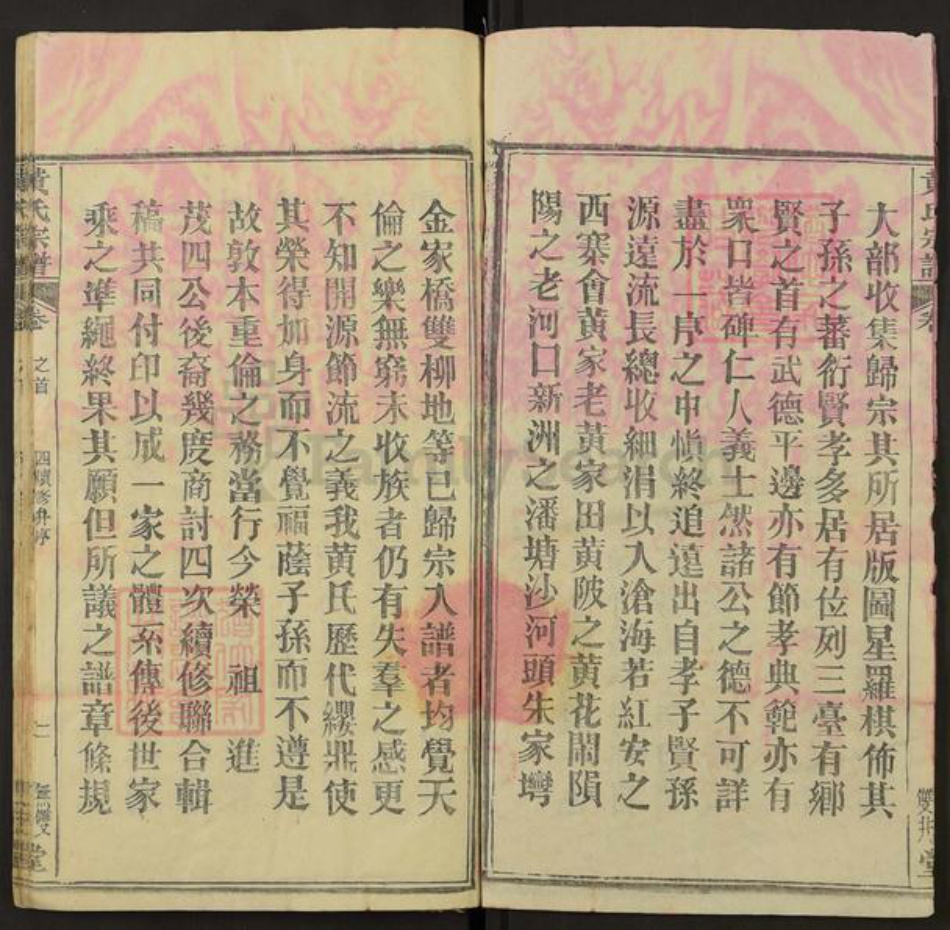 大部收集歸宗其所居版圖星羅棋佈其
子孫之蕃衍賢孝多居有位列三臺有鄉
賢之首有武德平邊亦有節孝典範亦有
衆口皆碑仁人義士然諸公之德不可詳
盡於一序之中慎終追遠出自孝子賢孫
源遠流長總收細涓以入滄海若紅安之
西寨會黃家老黃家田黃陂之黃花閙隕
陽之老河口新洲之潘塘沙河頭朱家灣
金家橋雙柳地等已歸宗入譜者均覺天
倫之樂無窮未收族者仍有失羣之感更
不知開源節流之義我黃氏歷代纓鼎使
其榮得如身而不覺福蔭子孫而不遵是
故敦本重倫之務當行今榮 祖 進
茂四公後裔幾度商討四次續修聯合輯
稿共同付印以成一家之體系傳後世家
乘之準繩終果其願但所議之譜章條規
黃氏宗譜 卷之首 四續修升序 一 雙井堂